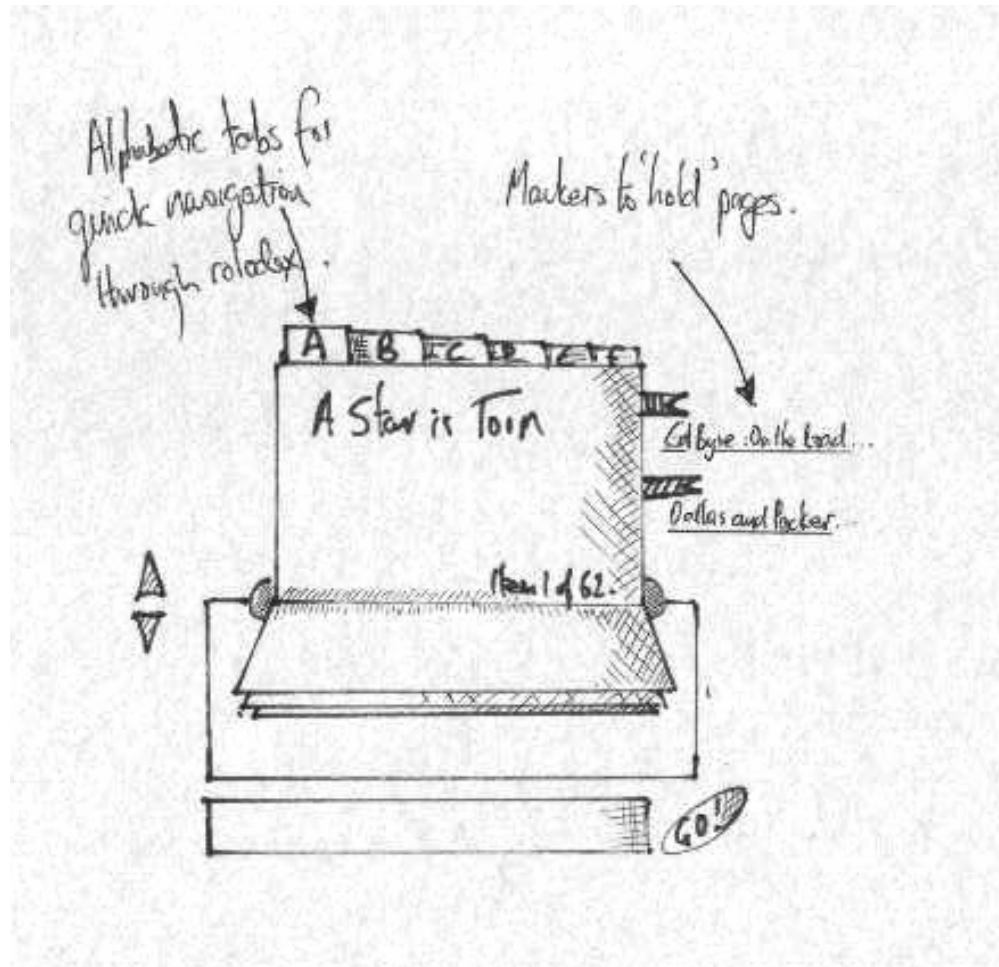 Alphabetic tabs for
quick navigation
through rolodex.
Markers to 'hold' pages.
A B C D E F
A Star is Torn
: On the Road...
Dallas and Packer...
1 of 62.
GO!